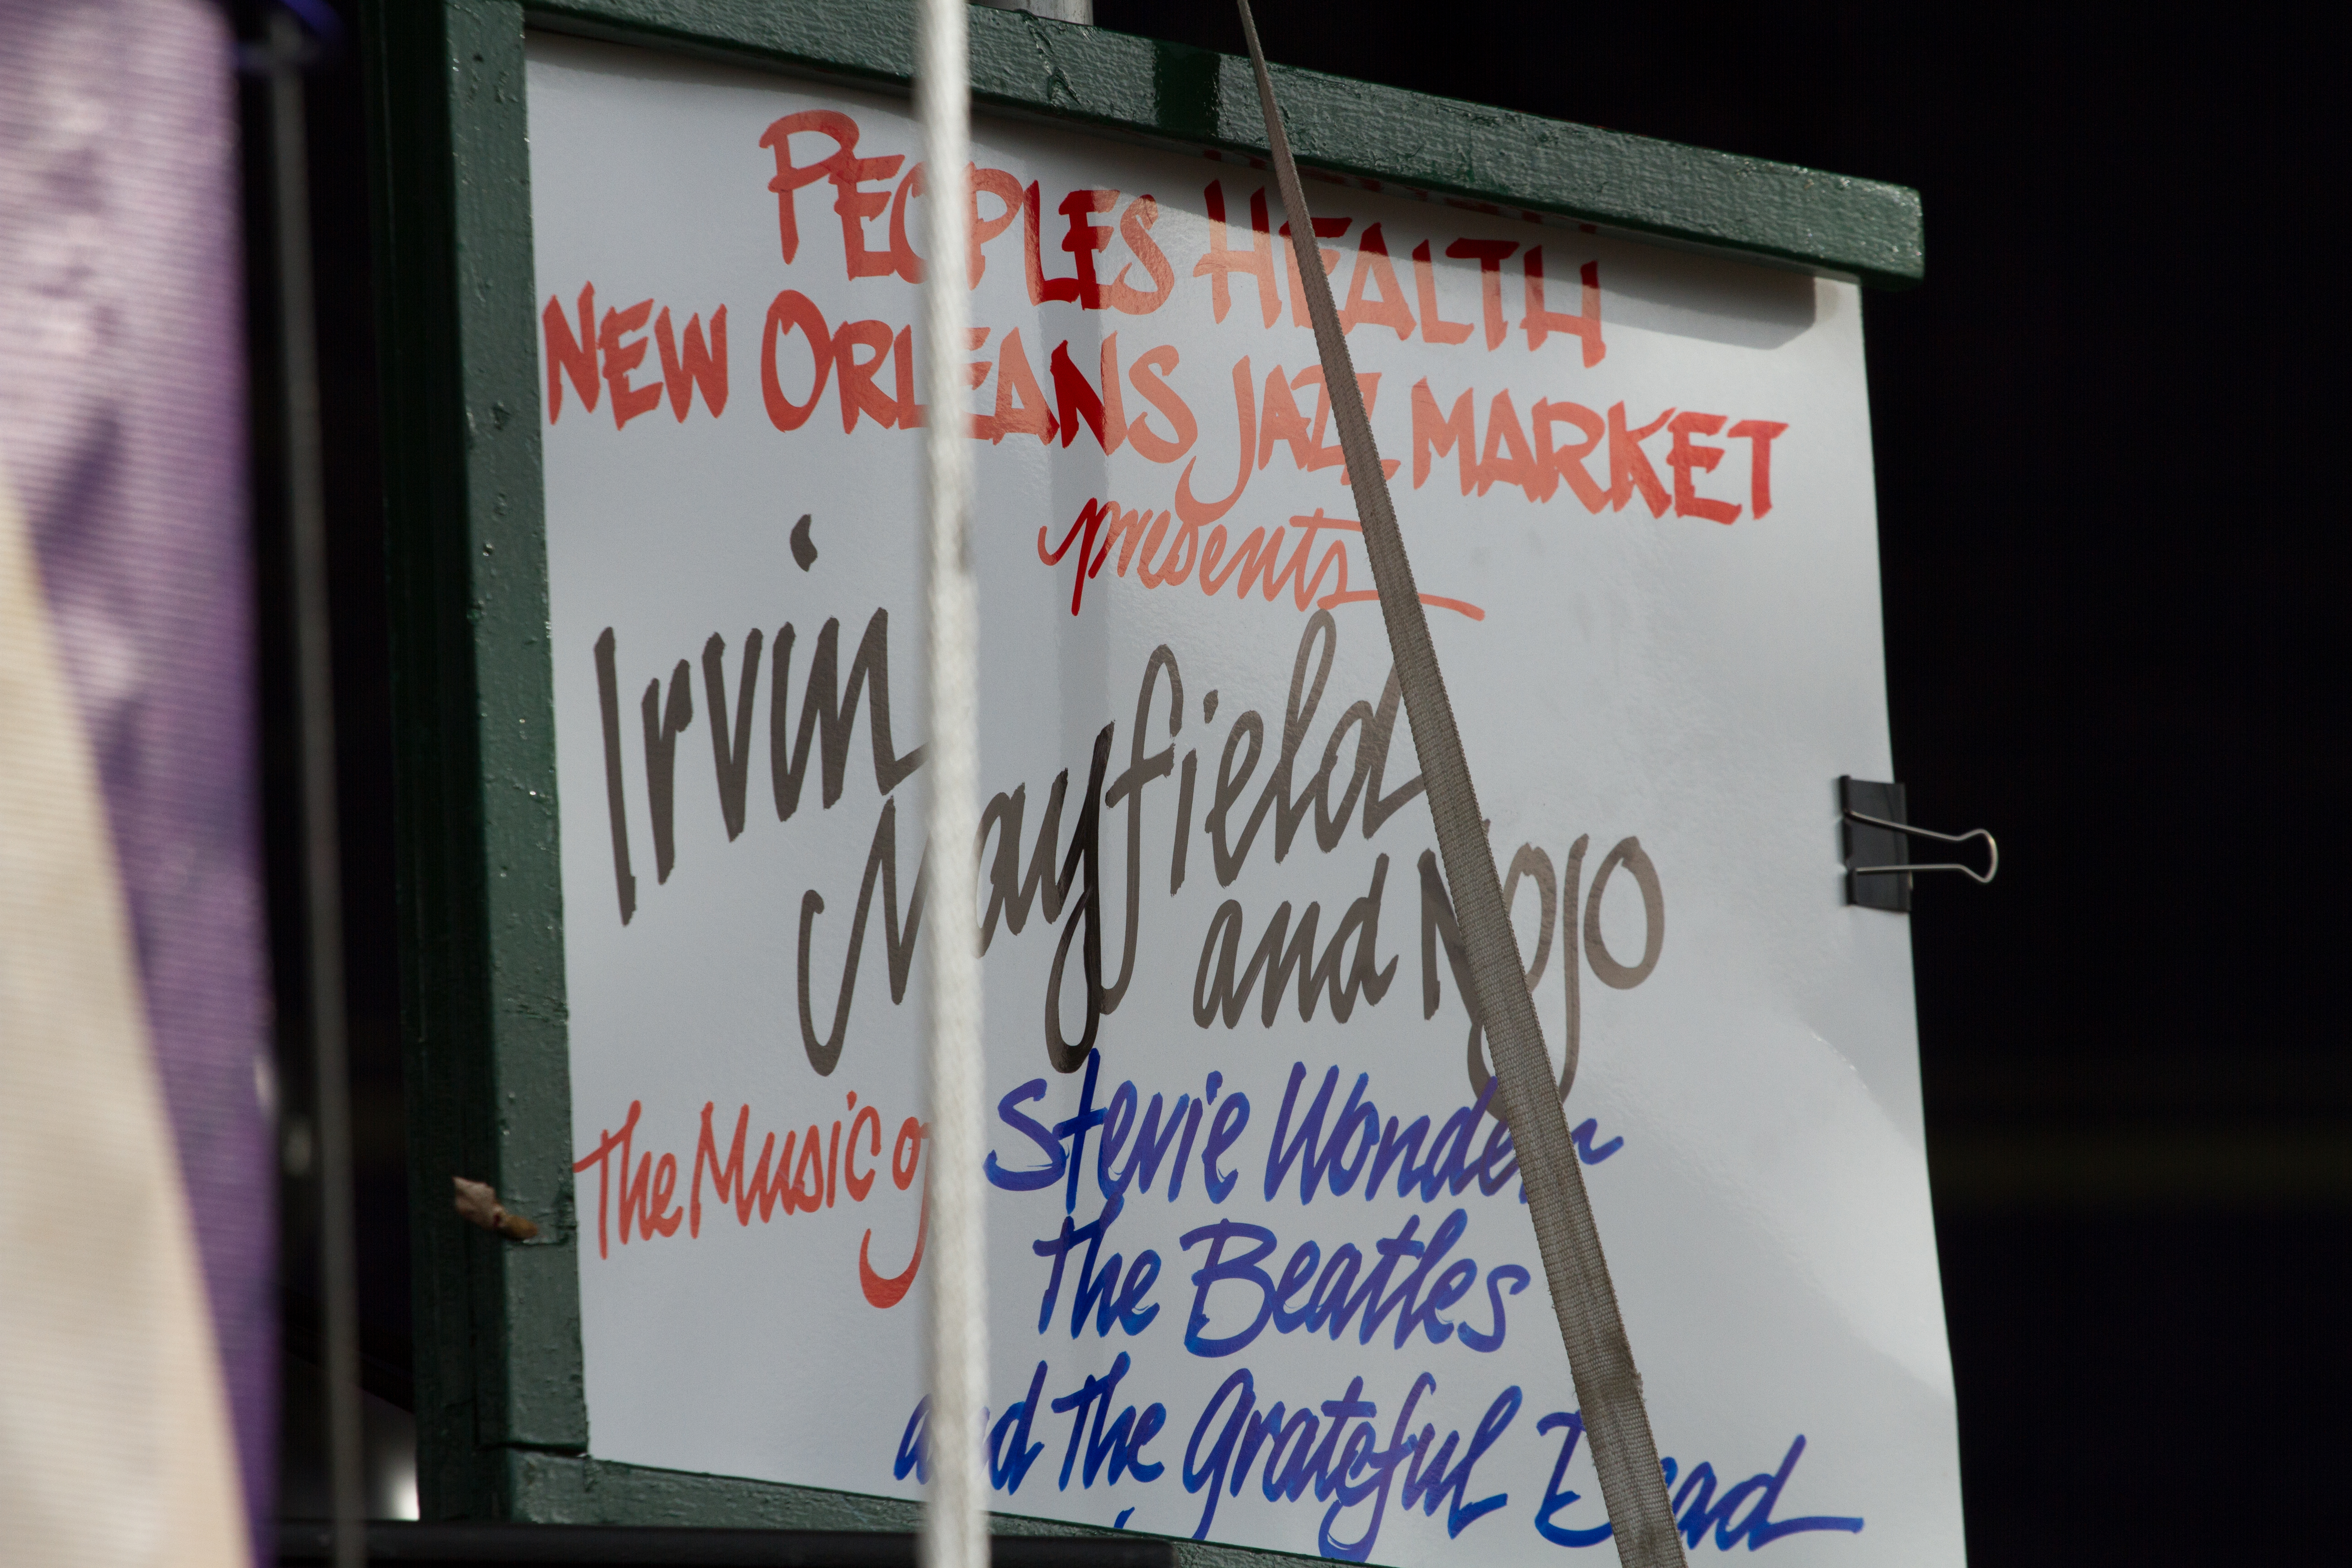 PEOPLES HEALTH
NEW ORLEANS JAZZ MARKET
presents
Irvin
Mayfield
and NOJO
The Music of Stevie Wonder
the Beatles
and the Grateful Dead